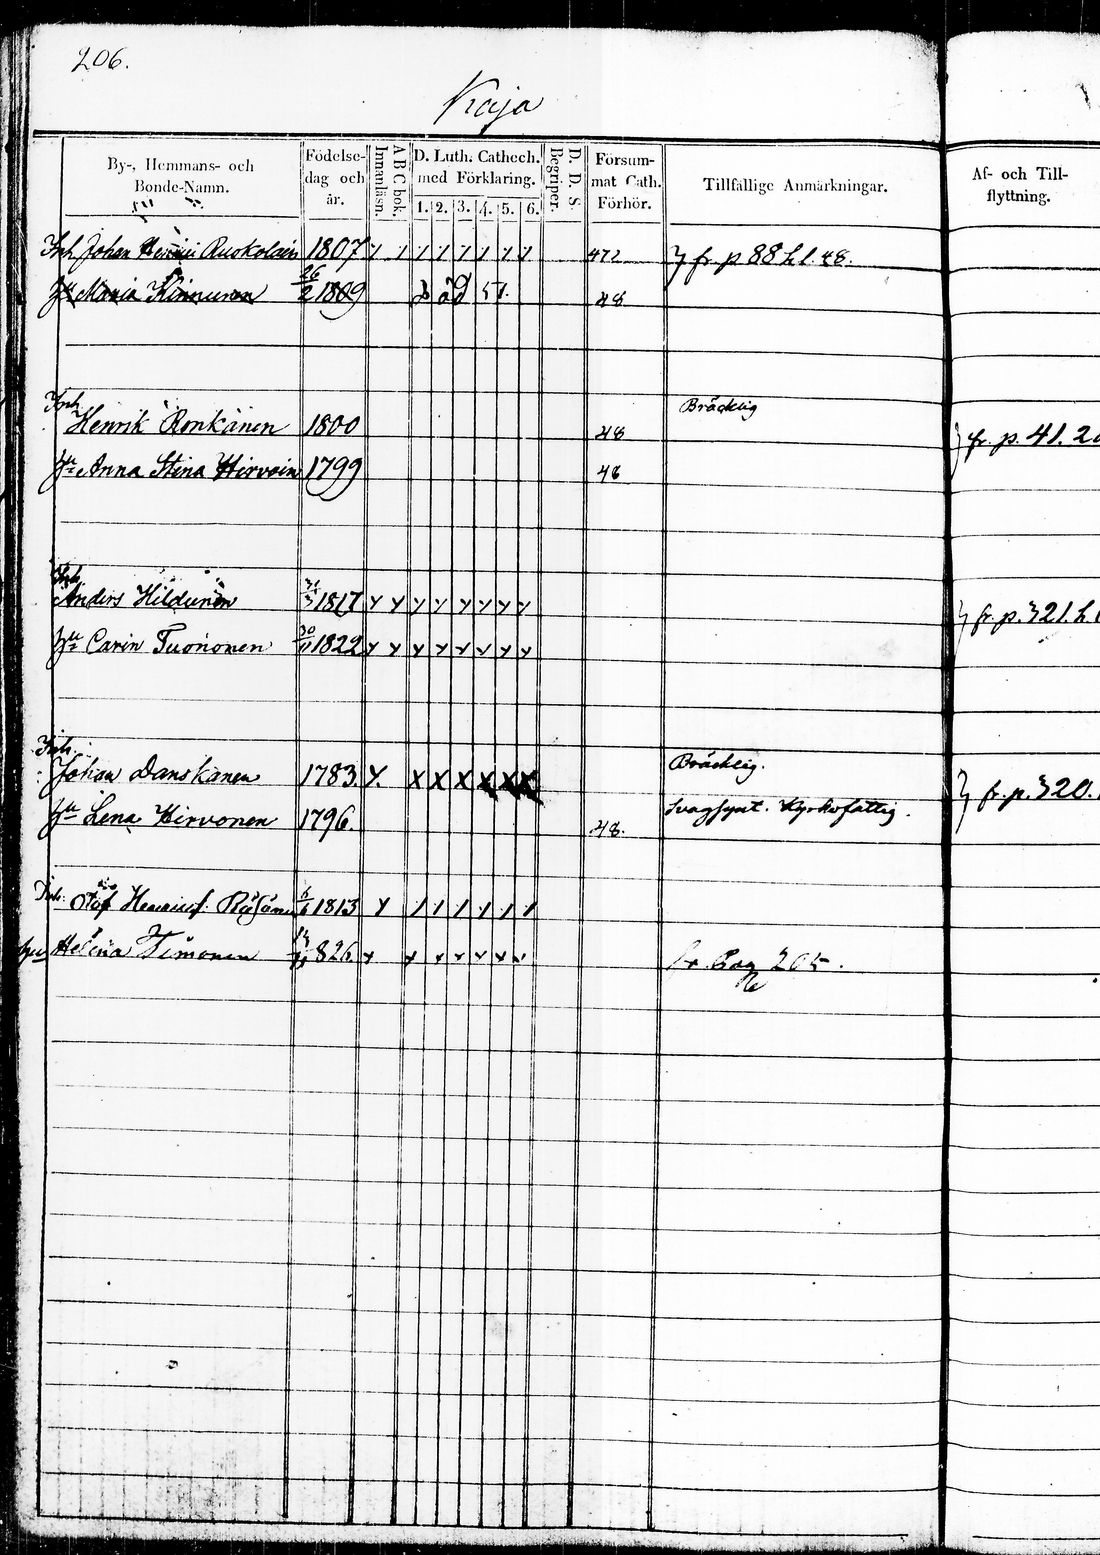 206.
Kaja
By-, Hemmans- och Bonde-Namn.
Födelse-dag och år.
Innanläsn.
A B C bok.
D. Luth. Cathech. med Förklaring.
1. 2. 3. 4. 5. 6.
Begriper.
D. D. S.
Försum-mat Cath. Förhör.
Tillfällige Anmärkningar.
Af- och Till-flyttning.
Inh Johan Ruokolain 1807 472 fr. p 88 h l. 48.
Hu Maria Kinnunen 26/2 1809 död 51. 48
Inh
Henrik Ronkänen 1800 48 Bräcklig fr. p. 41.
Hu Anna Stina Hirvoin 1799 48
Inh
Anders Hildunen 1817 fr. p. 321. h.
Hu Carin Tuononen 30/11 1822
Inh.
Johan Danskanen 1783. Y. x x x x x x Bräcklig. fr. p. 320.
Hu Lena Hirvonen 1796. 48. Svagsynt. Kyrkofattig.
Inh. Olof 6/6 1813
Helena Timonen 826. fr Pag 205.